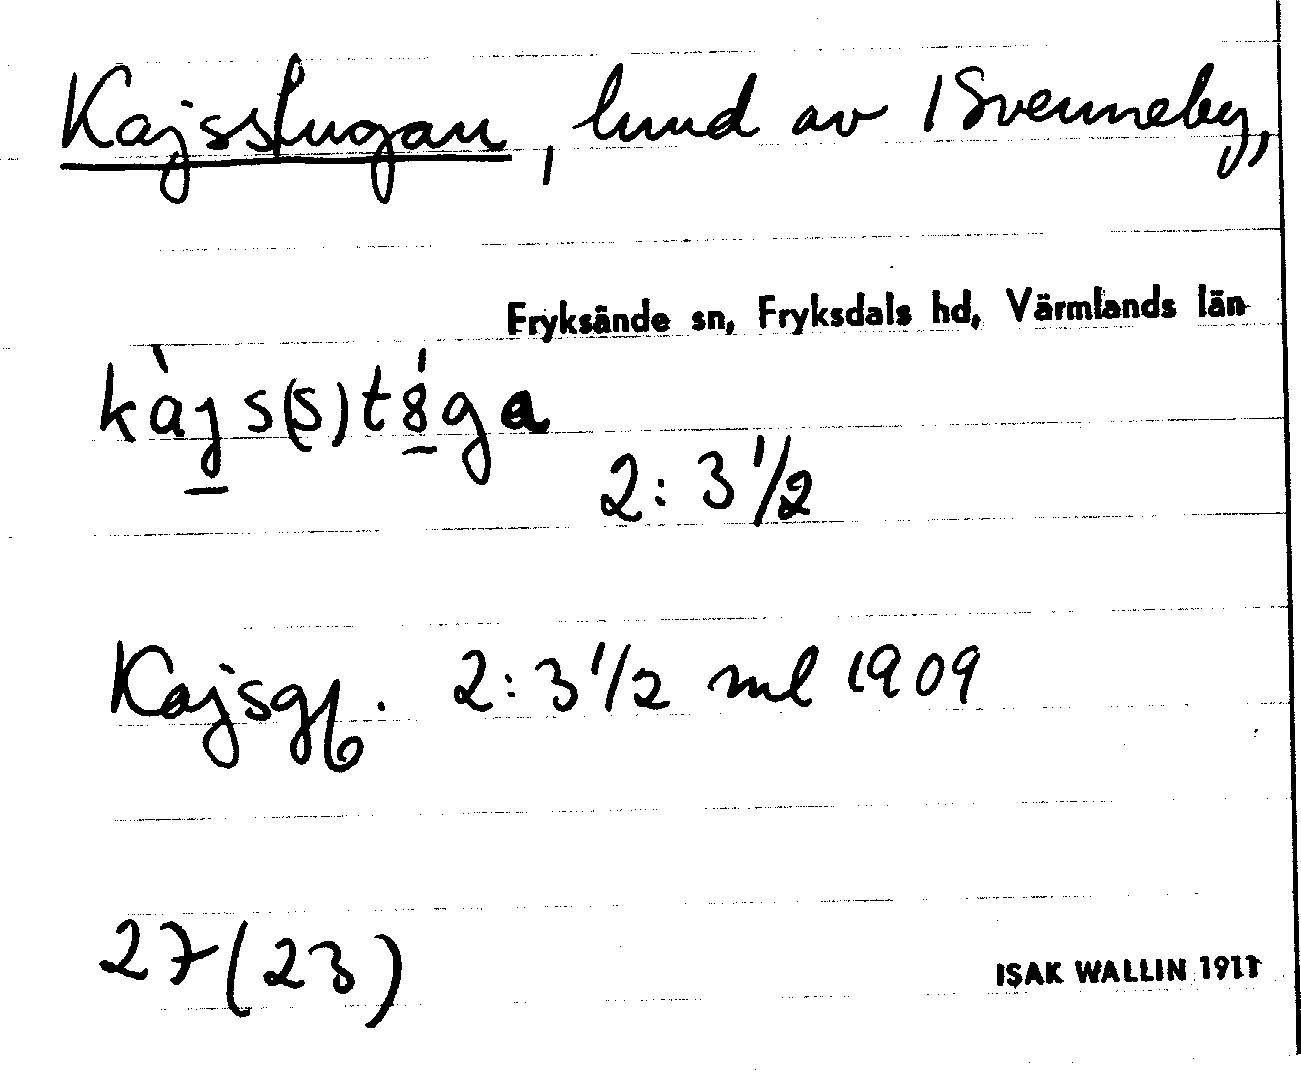 Kajsstugan, lund av 1 Svenneby,
Fryksände sn, Fryksdals hd, Värmlands län
kàjs(s)tȣ́ga
2:3 1/2
Kajsgp. 2:3 1/2 ml 1909
27(23)
ISAK WALLIN 1911